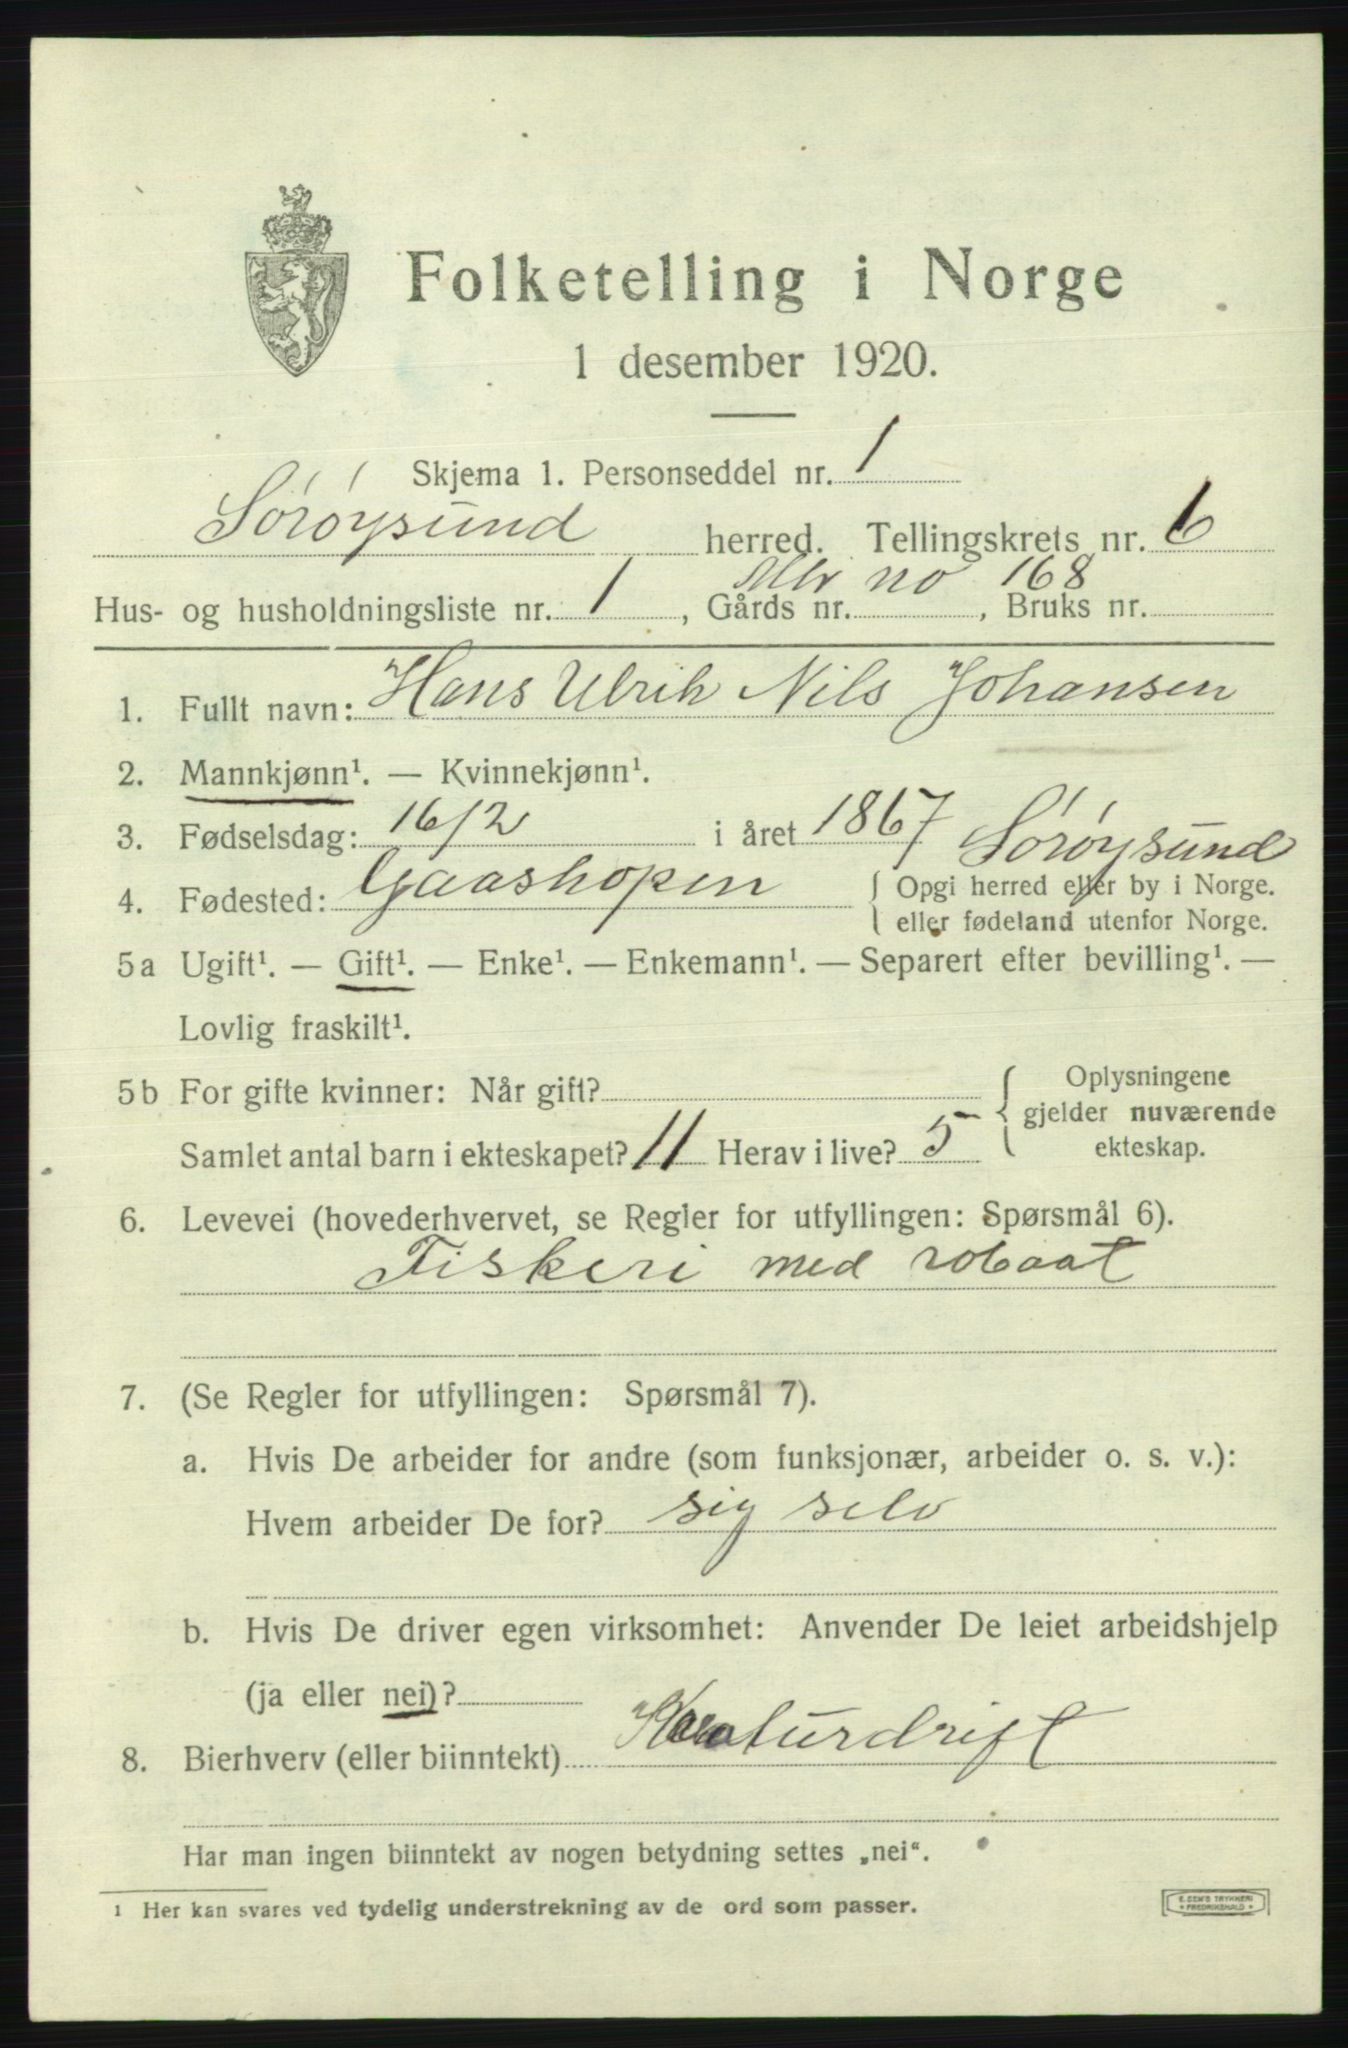 Folketelling i Norge
1 desember 1920.
Skjema 1. Personseddel nr. 1
Sørøysund herred. Tellingskrets nr. 6
Mtr no 168
Hus- og husholdningsliste nr. 1, Gårds nr. , Bruks nr.
1. Fullt navn: Hans Ulrik Nils Johansen
2. Mannkjønn¹. — Kvinnekjønn¹.
3. Fødselsdag: 16/2 i året 1867
Sørøysund
4. Fødested: Gaashopen { Opgi herred eller by i Norge.
eller fødeland utenfor Norge.
5a Ugift¹. — Gift¹. — Enke¹. — Enkemann¹. — Separert efter bevilling¹. —
Lovlig fraskilt¹.
5b For gifte kvinner: Når gift? { Oplysningene
gjelder nuværende
Samlet antal barn i ekteskapet? 11 Herav i live? 5 ekteskap.
6. Levevei (hovederhvervet, se Regler for utfyllingen: Spørsmål 6).
Fiskeri med robaat
7. (Se Regler for utfyllingen: Spørsmål 7).
a. Hvis De arbeider for andre (som funksjonær, arbeider o. s. v.):
Hvem arbeider De for? sig selv
b. Hvis De driver egen virksomhet: Anvender De leiet arbeidshjelp
(ja eller nei)?
8. Bierhverv (eller biinntekt) Kreaturdrift
Har man ingen biinntekt av nogen betydning settes „nei“.
1 Her kan svares ved tydelig understrekning av de ord som passer.
E. SEM'S TRYKKERI
* FREDRIKSHALD *